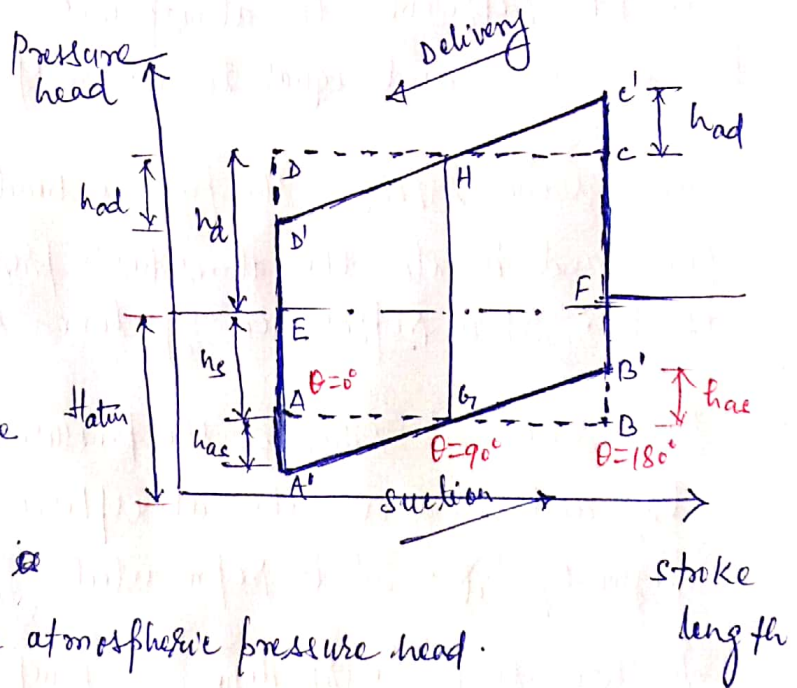 Pressure
head
Delivery
C'
had
C
D
H
had
hd
D'
F
E
hs
θ=0°
B'
Hatm
A
G
has
B
has
θ=90°
θ=180°
A'
suction
stroke
length
atmospheric pressure head.